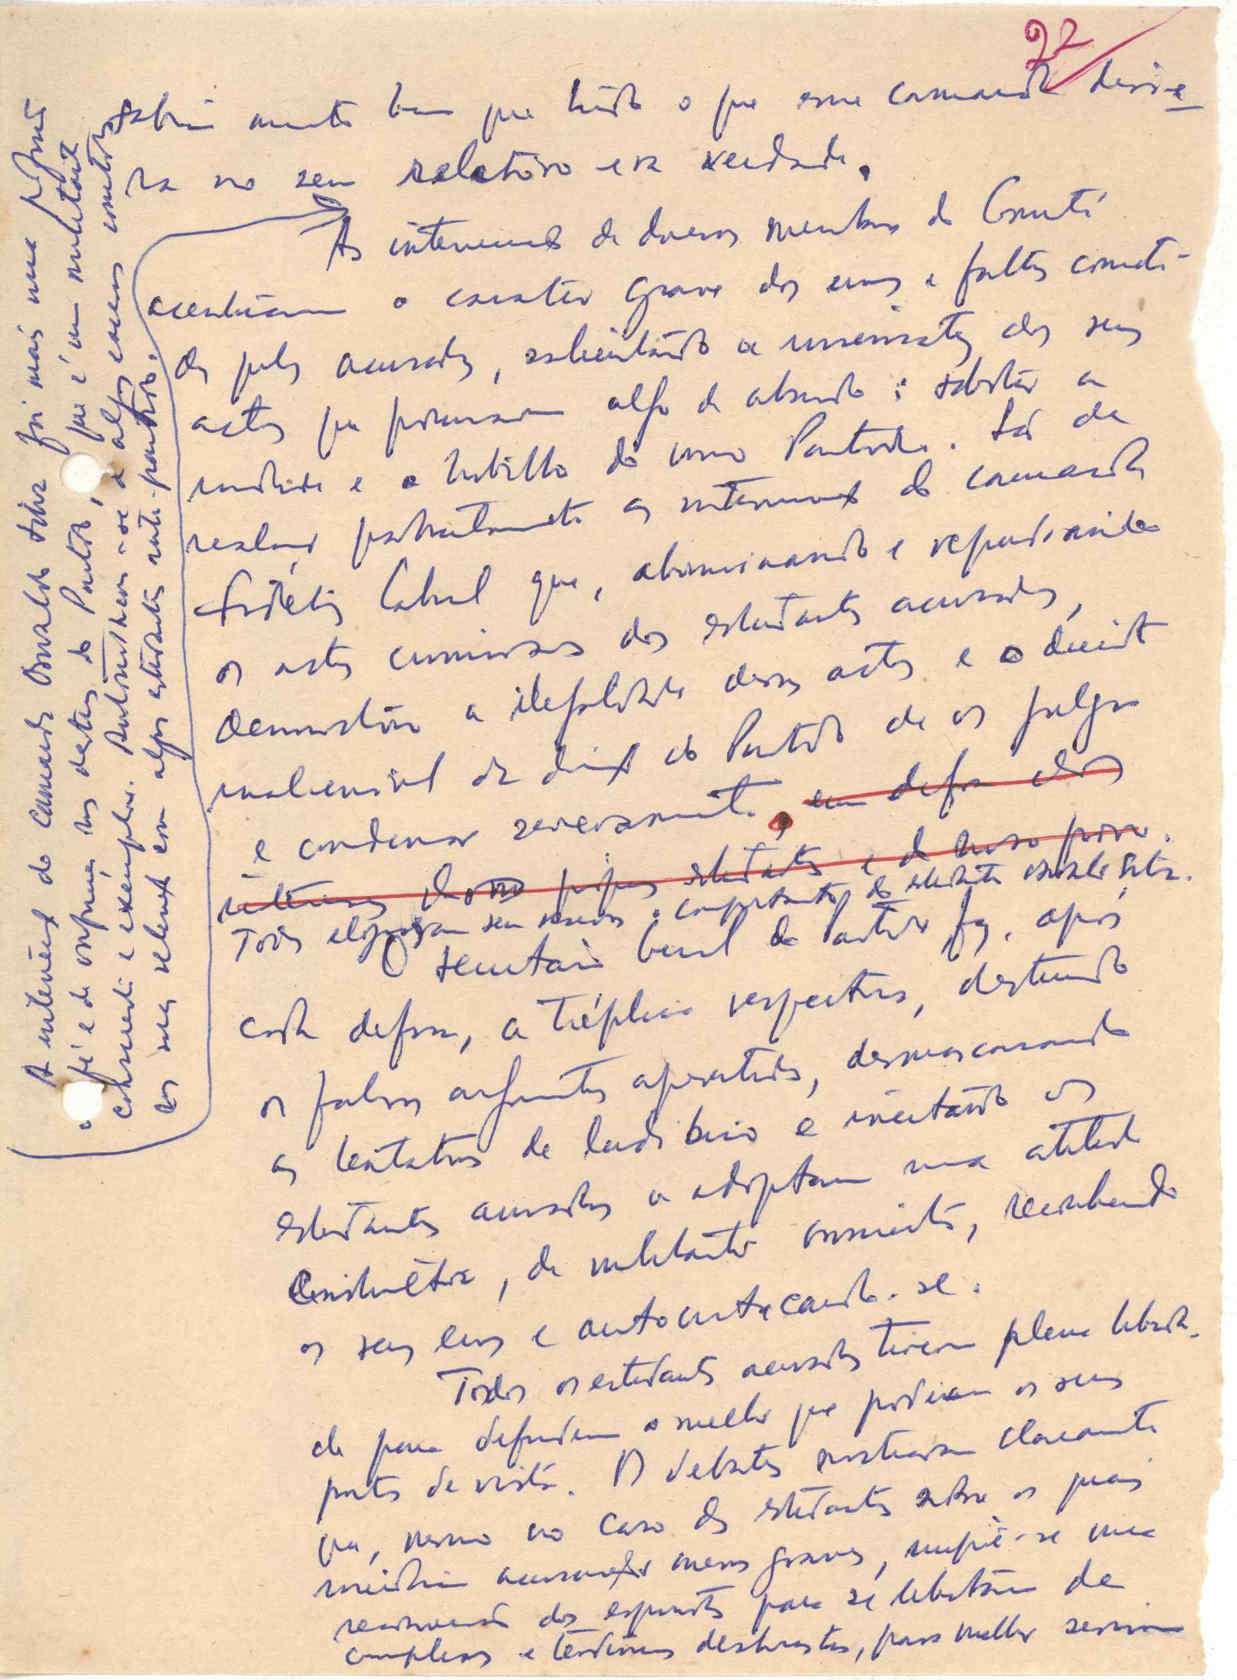 22
sabia muito bem que tudo o que esse camarada disse-
ra no seu relatório era verdade.
As intervenções de diversos membros do Comité
acentuaram o caracter grave dos erros e faltas cometi-
dos pelos acusados, salientando a dos seus
actos que procuravam algo de absurdo: sabotar a
unidade e o trabalho do nosso Partido. Há de
realçar as intervenções do camarada
Fidélis Cabral que, abominando e repudiando
os actos criminosos dos estudantes acusados,
demonstrou a ilegalidade desses actos e o direito
inalienável da direcção do Partido de os julgar
e condenar severamente, em defesa dos
interesses dos próprios estudantes e do nosso povo.
Todos elogiaram sem reservas o comportamento do estudante Osvaldo Silva.
O Secretário Geral do Partido fez, após
cada defesa, a tréplica respectiva, destruindo
os falsos argumentos apresentados, desmascarando
as tentativas de ludíbrio e incitando os
estudantes acusados a adoptarem uma atitude
construtiva, de militantes conscientes, reconhecendo
os seus erros e autocriticando-se.
Todos os estudantes acusados tiveram plena liberda-
de para defenderem o melhor que podiam os seus
pontos de vista. Os debates mostraram claramente
que, mesmo no caso dos estudantes sobre os quais
incidiam acusações menos graves, impõe-se uma
dos espíritos para se libertarem de
complexos e tendências, para melhor servirem
A intervenção do camarada Osvaldo Silva foi mais uma prova
de fé e de confiança nos destinos do Partido, que é um militante
consciente e exemplar. Autocriticou-se de alguns erros cometidos
nas suas relações com alguns estudantes anti-partido.